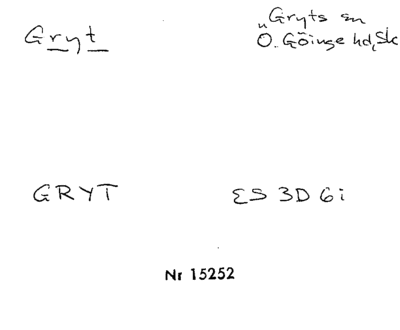 Gryt
„Gryts sn
Ö. Göinge hd, Sk
GRYT
ES 3D 6i
Nr 15252